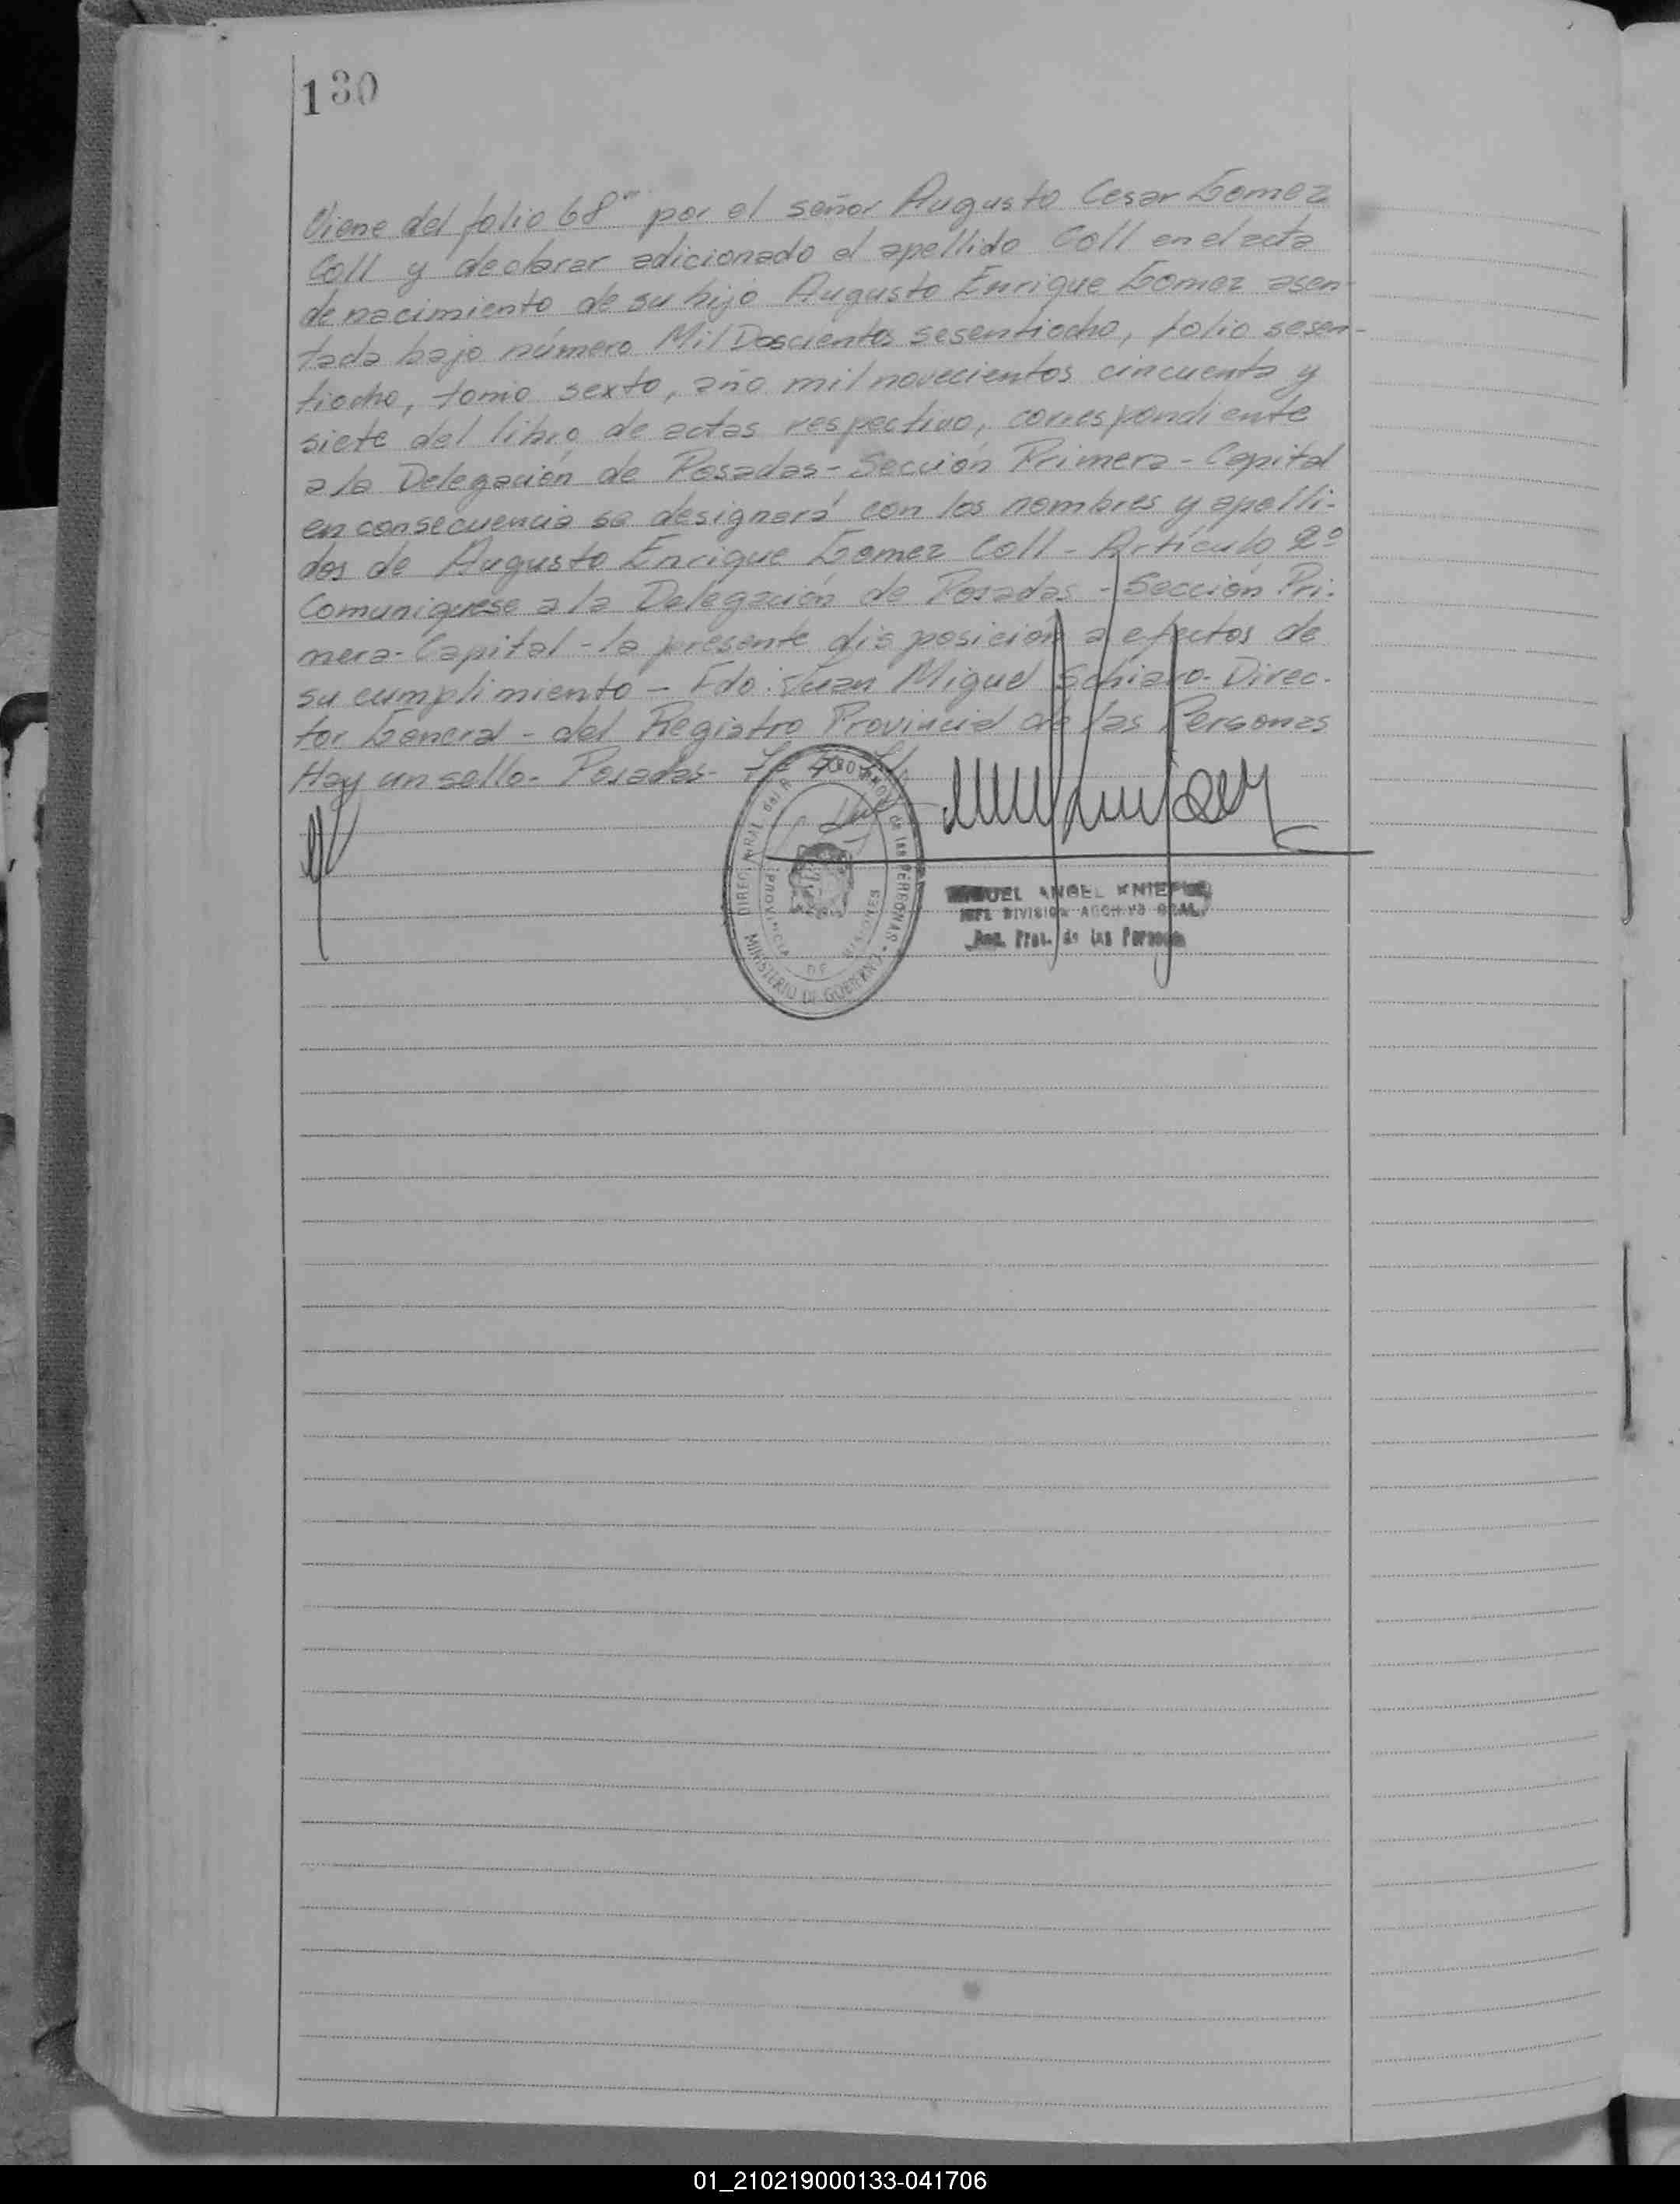 130
Viene del folio 68" por el señor Augusto Cesar Gomez
Coll y declarar adicionado el apellido Coll en el acta
de nacimiento de su hijo Augusto Enrique Gomez asen-
tada bajo número Mil Doscientos sesentiocho, folio sesen-
tiocho, tomo sexto, año mil novecientos cincuenta y
siete del libro de actas respectivo, correspondiente
a la Delegación de Posadas - Sección Primera - Capital
en consecuencia se designará con los nombres y apelli-
dos de Augusto Enrique Gomez Coll - Artículo 2º
Comuniquese a la Delegación de Posadas - Sección Pri-
mera - Capital - la presente disposición a efectos de
su cumplimiento - Fdo: Juan Miguel Schiavo - Direc-
tor General - del Registro Provincial de las Personas
Hay un sello - Posadas -
MINISTERIO DE GOBIERNO
PROVINCIA DE MISIONES
de las PERSONAS
MIGUEL ANGEL
JEFE DIVISION ARCHIVO GRAL.
Reg. Prov. de las Personas
01_210219000133-041706